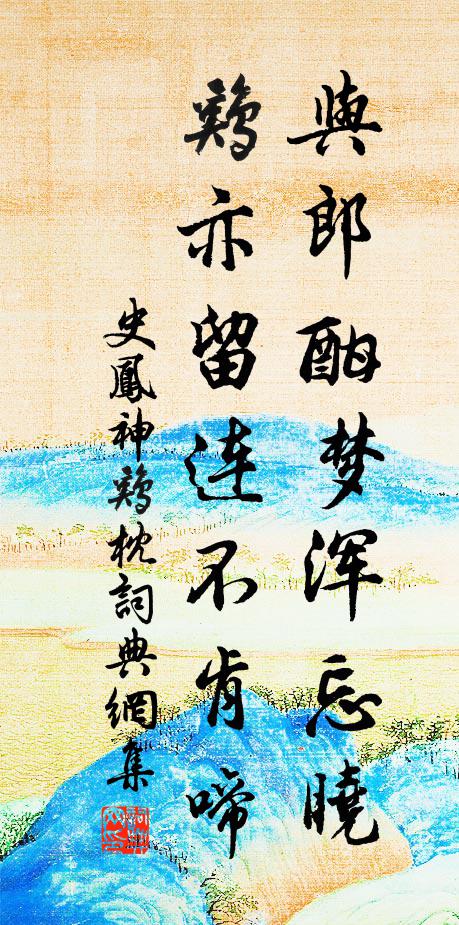 與郎酣梦浑忘曉
鷄亦留连不肯啼
史鳳神鷄枕詞典網集